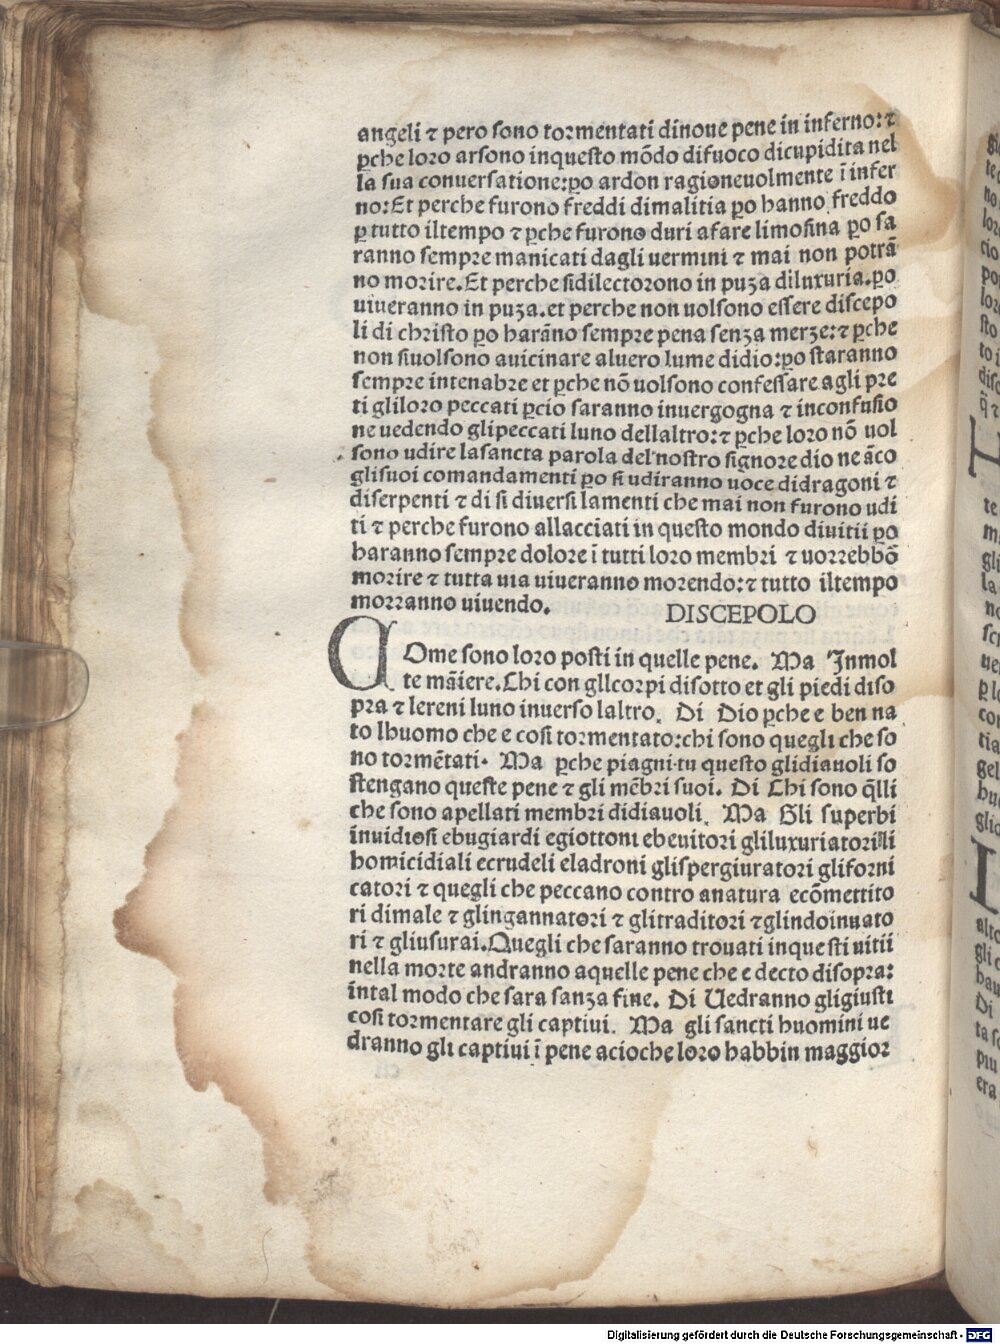 angeli ⁊ pero sono tormentati dinoue pene in inferno:⁊
ꝑche loro arsono inquesto mõdo difuoco dicupidita nel
la sua conuersatione:ꝑo ardon ragioneuolmente ĩ infer
no:Et perche furono freddi dimalitia ꝑo hanno freddo
ꝑ tutto iltempo ⁊ ꝑche furono duri afare limosina ꝑo sa
ranno sempre manicati dagli uermini ⁊ mai non potrã
no morire.Et perche sidilectorono in puza diluxuria.ꝑo
uiueranno in puza.et perche non uolsono essere discepo
li di christo ꝑo harãno sempre pena senza merze:⁊ ꝑche
non siuolsono auicinare aluero lume didio:ꝑo staranno
sempre intenabre et ꝑche nõ uolsono confessare agli pre
ti gliloro peccati ꝑcio saranno inuergogna ⁊ inconfusio
ne uedendo glipeccati luno dellaltro:⁊ ꝑche loro nõ uol
sono udire lasancta parola del nostro signore dio ne ãco
glisuoi comandamenti ꝑo si udiranno uoce didragoni ⁊
diserpenti ⁊ di si diuersi lamenti che mai non furono udi
ti ⁊ perche furono allacciati in questo mondo diuitii ꝑo
haranno sempre dolore ĩ tutti loro membri ⁊ uorrebbõ
morire ⁊ tutta uia uiueranno morendo:⁊ tutto iltempo
morranno uiuendo.
DISCEPOLO
COme sono loro posti in quelle pene. Ma Inmol
te mãiere.Chi con glicorpi disotto et gli piedi diso
pra ⁊ lereni luno inuerso laltro. Di Dio ꝑche e ben na
to lhuomo che e cosi tormentato:chi sono quegli che so
no tormẽtati. Ma ꝑche piagni.tu questo glidiauoli so
stengano queste pene ⁊ gli mẽbri suoi. Di Chi sono q̃lli
che sono apellati membri didiauoli. Ma Gli superbi
inuidiosi ebugiardi egiottoni ebeuitori gliluxuriatori li
homicidiali ecrudeli eladroni glispergiuratori gliforni
catori ⁊ quegli che peccano contro anatura ecõmettito
ri dimale ⁊ glingannatori ⁊ glitraditori ⁊glindoinuato
ri ⁊ gliusurai.Quegli che saranno trouati inquesti uitii
nella morte andranno aquelle pene che e decto disopra:
ĩntal modo che sara sanza fine. Di Uedranno gligiusti
cosi tormentare gli captiui. Ma gli sancti huomini ue
dranno gli captiui ĩ pene acioche loro habbin maggior
Digitalisierung gefördert durch die Deutsche Forschungsgemeinschaft - DFG